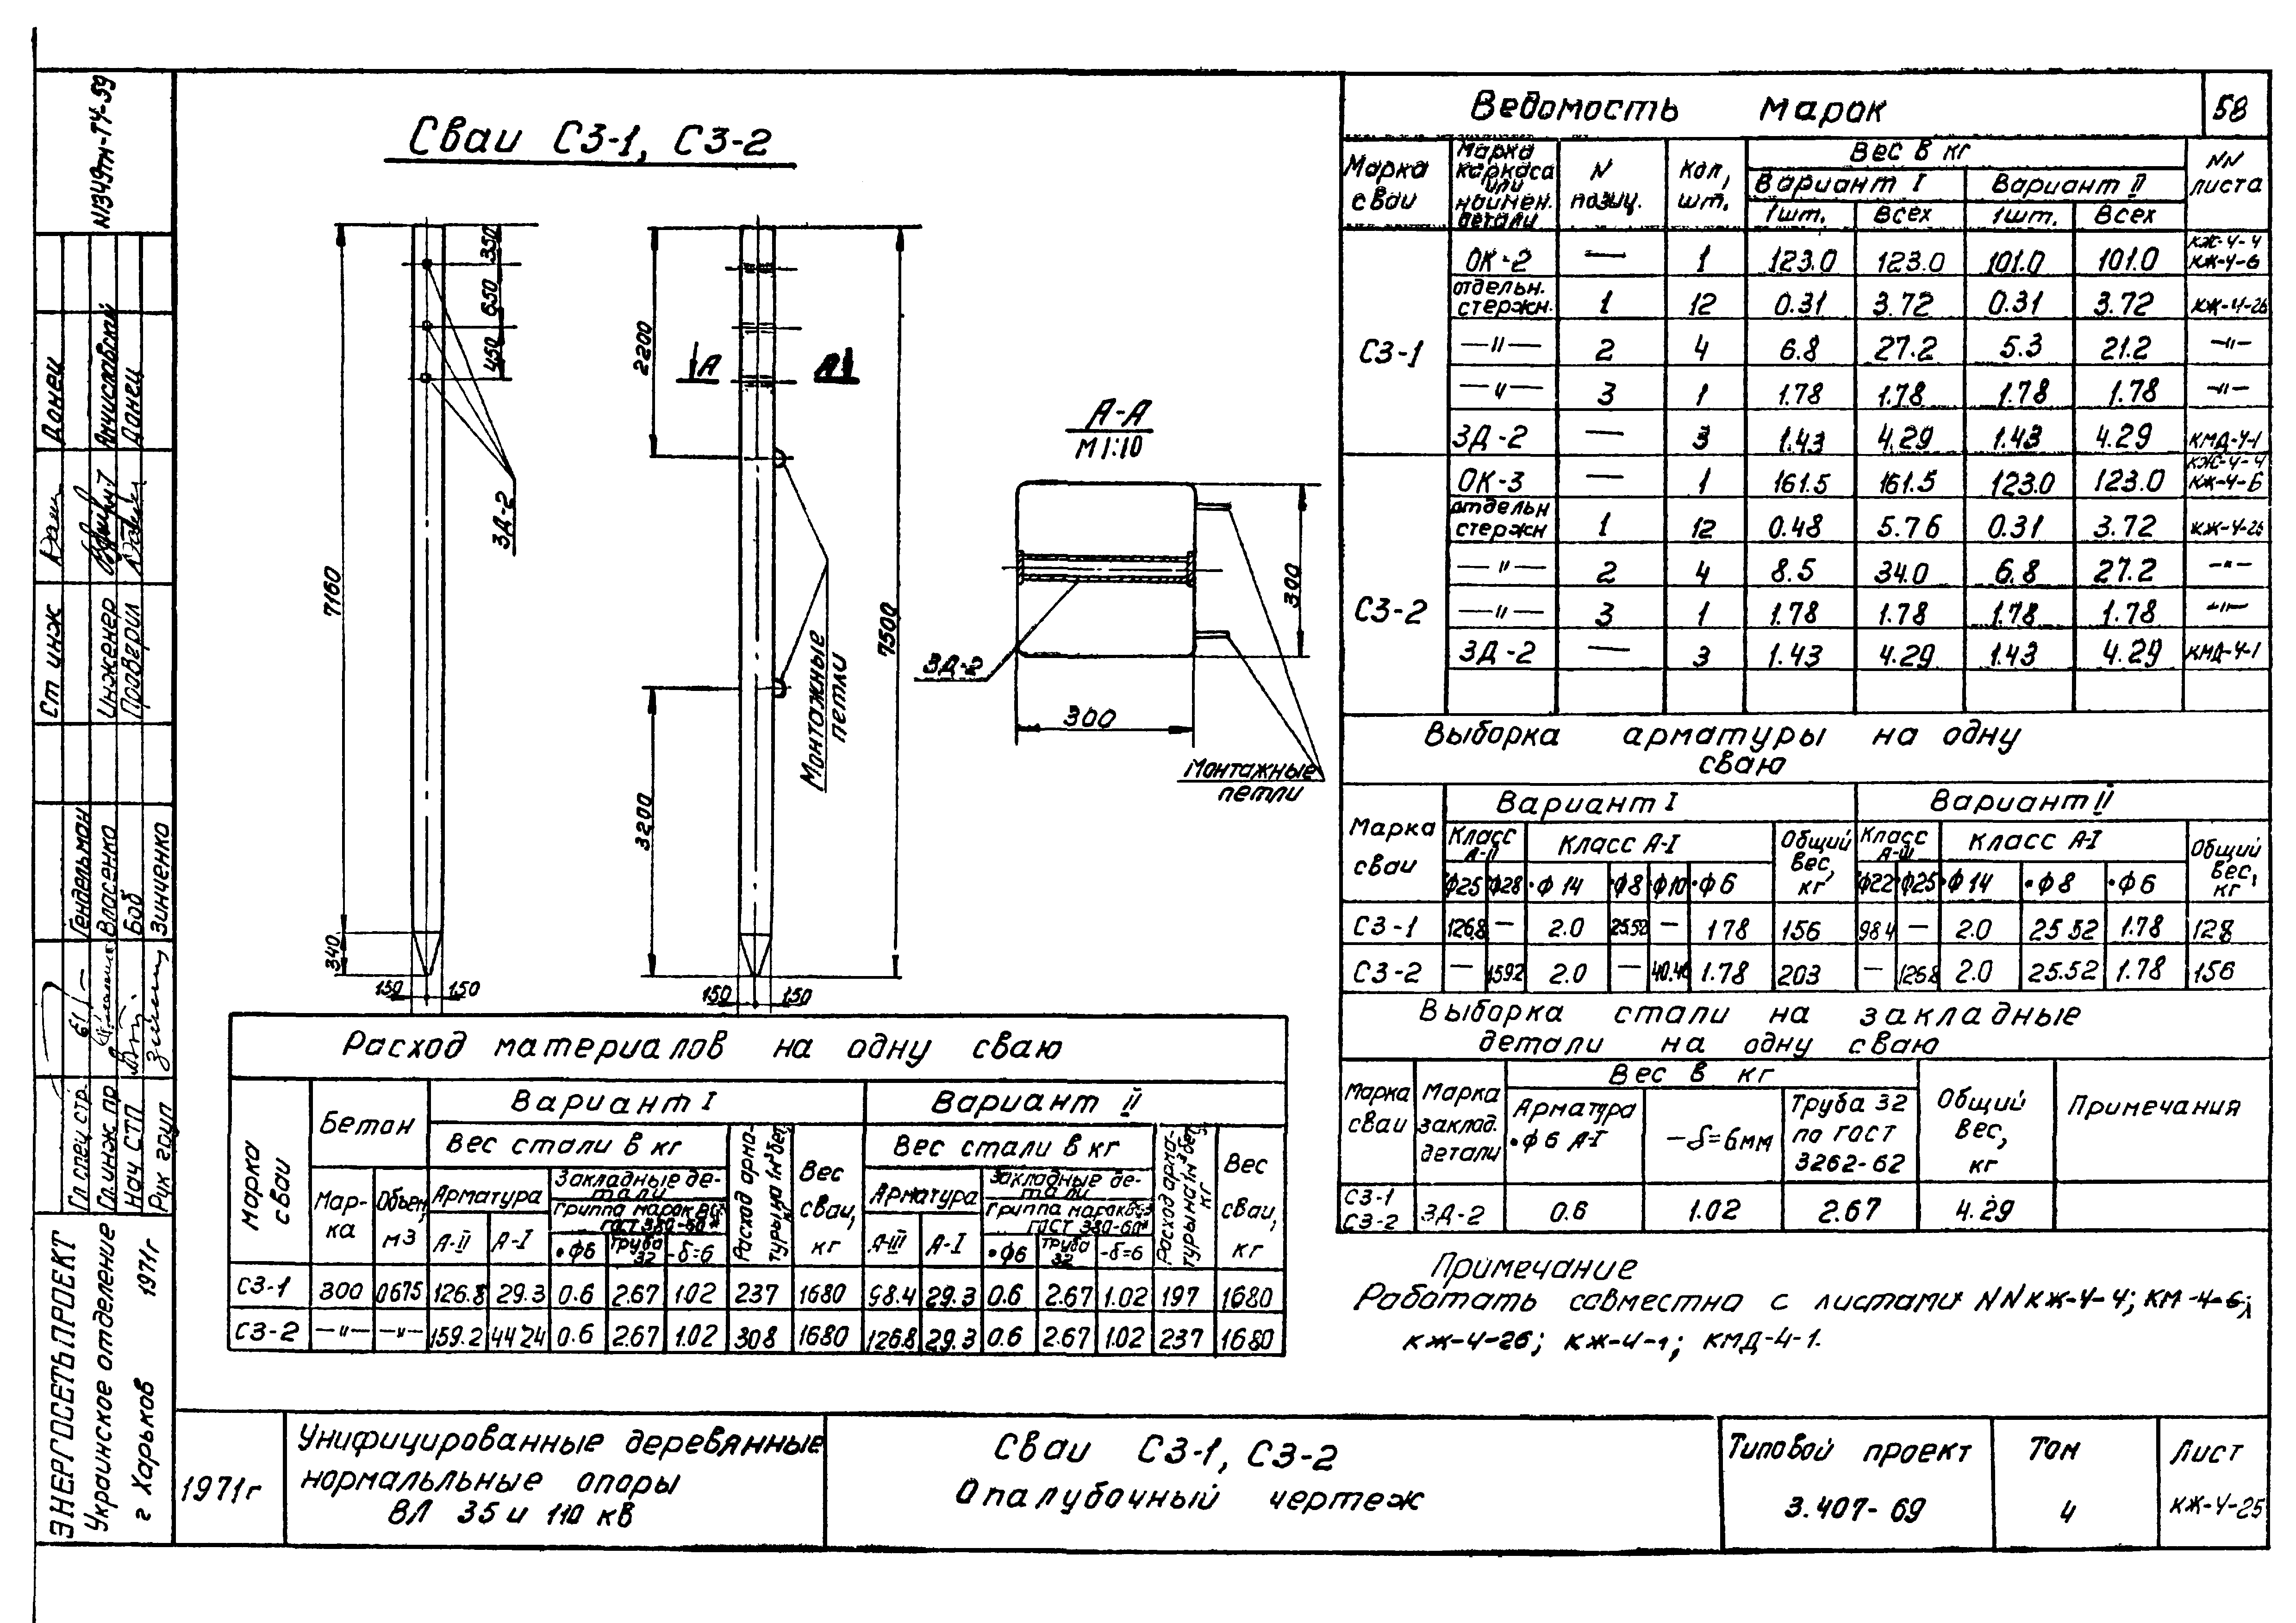 N1349тм-Т4-59
Сваи С3-1, С3-2
350
650
450
7160
340
150 150
ЗД-2
2200
3200
7500
А А
150 150
Монтажные
петли
А-А
М 1:10
300
300
ЗД-2
Монтажные
петли
Ведомость марок 58
Марка сваи
Марка каркаса или наимен. детали
N позиц.
Кол, шт.
Вес в кг
Вариант I Вариант II
1шт. Всех 1шт. Всех
NN листа
С3-1
ОК-2 — 1 123.0 123.0 101.0 101.0 КЖ-4-4 КЖ-4-6
отдельн. стержн. 1 12 0.31 3.72 0.31 3.72 КЖ-4-26
—"— 2 4 6.8 27.2 5.3 21.2 —"—
—"— 3 1 1.78 1.78 1.78 1.78 —"—
ЗД-2 — 3 1.43 4.29 1.43 4.29 КМД-4-1
С3-2
ОК-3 — 1 161.5 161.5 123.0 123.0 КЖ-4-4 КЖ-4-6
отдельн стержн 1 12 0.48 5.76 0.31 3.72 КЖ-4-26
—"— 2 4 8.5 34.0 6.8 27.2 —"—
—"— 3 1 1.78 1.78 1.78 1.78 —"—
ЗД-2 — 3 1.43 4.29 1.43 4.29 КМД-4-1
Выборка арматуры на одну
сваю
Марка сваи
Вариант I Вариант II
Класс А-II Класс А-I Общий вес, кг Класс А-III Класс А-I Общий вес, кг
Ф25 Ф28 •Ф 14 •Ф8 •Ф10 •Ф6 Ф22 •Ф25 •Ф 14 •Ф8 •Ф6
С3-1 126.8 — 2.0 25.52 — 178 156 98.4 — 2.0 25 52 1.78 128
С3-2 — 159.2 2.0 — 40.46 1.78 203 — 126.8 2.0 25.52 1.78 156
Выборка стали на закладные
детали на одну сваю
Марка сваи
Марка заклад. детали
Вес в кг
Арматура •Ф6 А-I
—δ=6мм
Труба 32 по гост 3262-62
Общий вес, кг
Примечания
С3-1
С3-2 ЗД-2 0.6 1.02 2.67 4.29
Примечание
Работать совместно с листами NN КЖ-4-4; КМ-4-6;
КЖ-4-26; КЖ-4-1; КМД-4-1.
Расход материалов на одну сваю
Марка сваи
Бетон
Марка
Объем, м3
Вариант I Вариант II
Вес стали в кг Вес стали в кг
Арматура Закладные детали Арматура Закладные детали
группа марок ГОСТ 380-60* группа марок ГОСТ 380-60*
А-II А-I •Ф6 Труба 32 -δ=6 А-III А-I •Ф6 Труба 32 -δ=6
Расход арматуры на 1м³ бет, кг
Вес сваи, кг
Расход арматуры на 1м³ бет, кг
Вес сваи, кг
С3-1 300 0675 126.8 29.3 0.6 2.67 1.02 237 1680 98.4 29.3 0.6 2.67 1.02 197 1680
С3-2 —"— —"— 159.2 44 24 0.6 2.67 1.02 308 1680 126.8 29.3 0.6 2.67 1.02 237 1680
Ст инж Донец
Инженер
Проверил Донец
Гл. спец. стр. Гендельман
Гл. инж. пр Власенко
Нач. СТП Боб
Рук груп Зинченко
ЭНЕРГОСЕТЬПРОЕКТ
Украинское отделение
г Харьков 1971г
1971г
Унифицированные деревянные
нормальльные опоры
ВЛ 35 и 110 кв
Сваи С3-1, С3-2
Опалубочный чертеж
Типовой проект
3.407-69
Том
4
Лист
КЖ-4-25